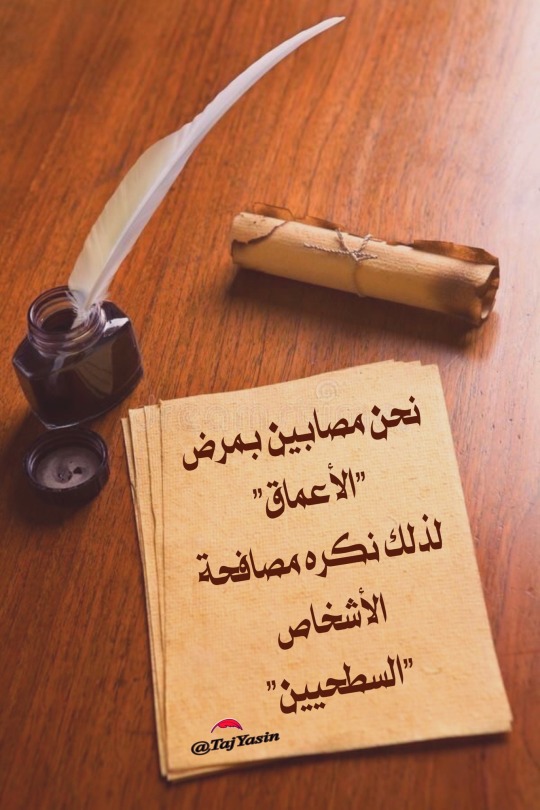 نحن مصابين بمرض
"الأعماق"
لذلك نكره مصافحة
الأشخاص
"السطحيين"
@TajYasin